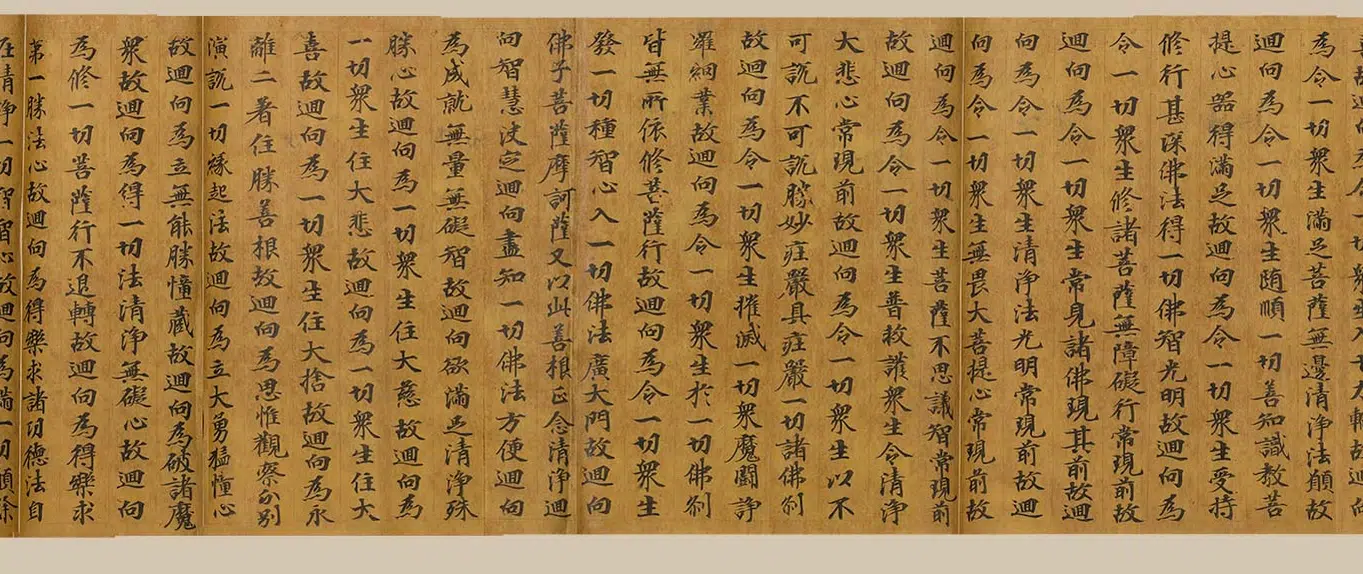 為令一切衆生滿足菩薩無邊清淨法願故
迴向為令一切衆生随順一切善知識教菩
提心器得滿足故迴向為令一切衆生受持
修行甚深佛法得一切佛智光明故迴向為
令一切衆生修諸菩薩無障礙行常現前故
迴向為令一切衆生常見諸佛現其前故迴
向為令一切衆生清淨法光明常現前故迴
向為令一切衆生無畏大菩提心常現前故
迴向為令一切衆生菩薩不思議智常現前
故迴向為令一切衆生普救護衆生令清淨
大悲心常現前故迴向為令一切衆生以不
可說不可說勝妙莊嚴具莊嚴一切諸佛刹
故迴向為令一切衆生摧滅一切衆魔鬪諍
羅網業故迴向為令一切衆生於一切佛刹
皆無所依修菩薩行故迴向為令一切衆生
發一切種智心入一切佛法廣大門故迴向
佛子菩薩摩訶薩又以此善根正念清淨迴
向智慧決定迴向盡知一切佛法方便迴向
為成就無量無礙智故迴向欲滿足清淨殊
勝心故迴向為一切衆生住大慈故迴向為
一切衆生住大悲故迴向為一切衆生住大
喜故迴向為一切衆生住大捨故迴向為永
離二著住勝善根故迴向為思惟觀察分別
演說一切緣起法故迴向為立大勇猛幢心
故迴向為立無能勝幢藏故迴向為破諸魔
衆故迴向為得一切法清淨無礙心故迴向
為修一切菩薩行不退轉故迴向為得樂求
第一勝法心故迴向為得樂求諸功德法自
在清淨一切智智心故迴向為滿一切願除